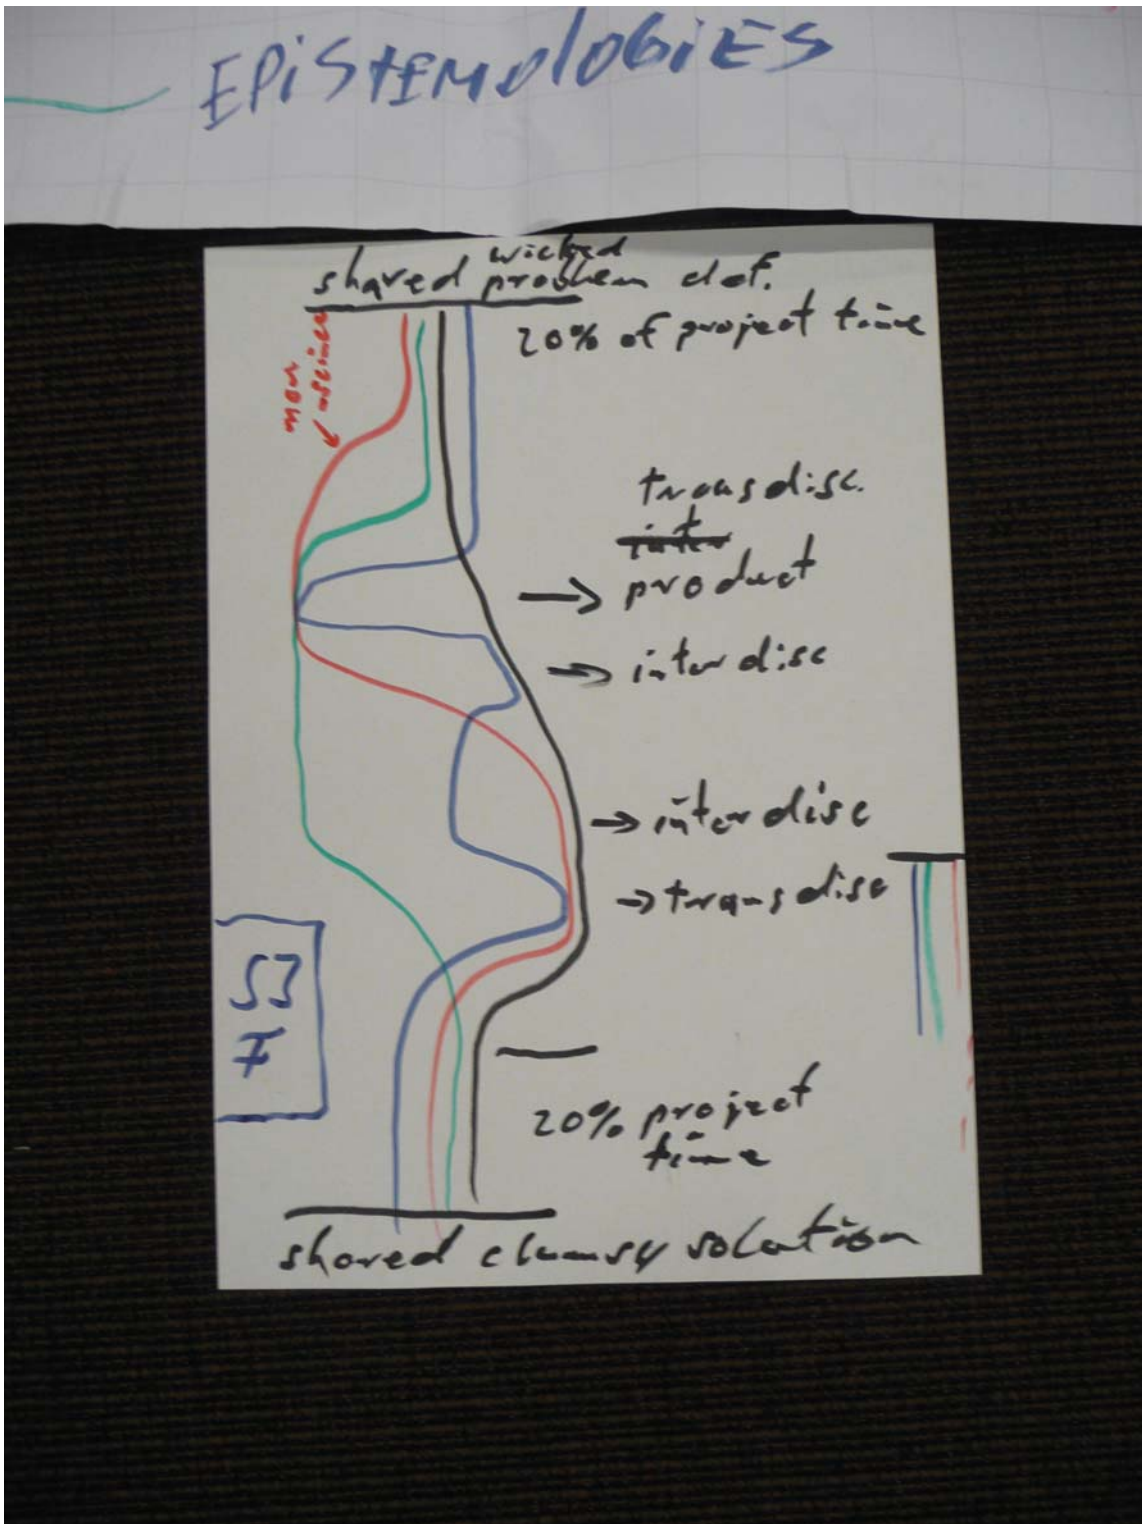 EPiSTEMOlOGiES
shared wicked problem def.
20% of project time
non
science
transdisc.
inter
product
interdisc
interdisc
transdisc
S3
F
20% project
time
shared clumsy solution